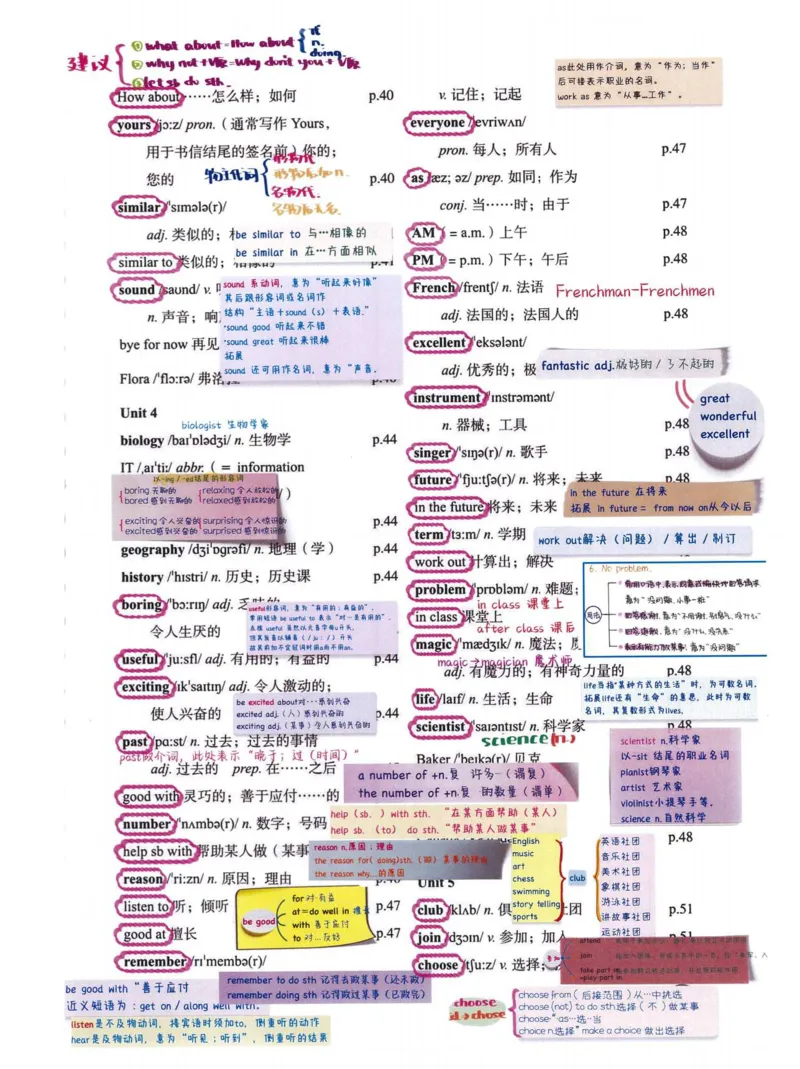 建议
① what about=How about
n.
doing
② why not +V原=Why don't you + V原
③ let sb do sth.
How about……怎么样；如何 p.40
yours /jɔ:z/ pron.（通常写作 Yours，
用于书信结尾的签名前）你的；
您的 p.40
物主代词
形物代
名物代.
similar /ˈsɪmələ(r)/
adj. 类似的；
be similar to 与…相像的
be similar in 在…方面相似
similar to 类似的；相像的 p.41
sound /saʊnd/ v.
n. 声音；响
sound 系动词，意为“听起来好像”
其后跟形容词或名词作
结构“主语＋sound（s）＋表语.”
·sound good 听起来不错
·sound great 听起来很棒
拓展
sound 还可用作名词，意为“声音。
bye for now 再见
Flora /ˈflɔ:rə/
Unit 4
biologist 生物学家
biology /baɪˈɒlədʒi/ n. 生物学 p.44
IT /ˌaɪˈti:/ abbr.（ = information
以-ing / -ed结尾的形容词
boring 无聊的
bored 感到无聊的
relaxing 令人放松的
relaxed感到放松的
exciting 令人兴奋的
excited感到兴奋的
surprising 令人惊讶的
surprised 感到惊讶的
p.44
geography /dʒiˈɒgrəfi/ n. 地理（学） p.44
history /ˈhɪstri/ n. 历史；历史课 p.44
boring /ˈbɔ:rɪŋ/ adj. 乏味的
令人生厌的
useful形容词，意为“有用的；有益的”.
常用短语 be useful to 表示“对…是有用的”.
useful /ˈju:sfl/ adj. 有用的；有益的 p.44
exciting /ɪkˈsaɪtɪŋ/ adj. 令人激动的；
使人兴奋的 p.44
be excited about对…感到兴奋
excited adj.（人）感到兴奋的
exciting adj.（某事）令人感到兴奋的
past /pɑ:st/ n. 过去；过去的事情
past做介词，此处表示“晚于；过（时间）”
adj. 过去的 prep. 在……之后
good with 灵巧的；善于应付……的
number /ˈnʌmbə(r)/ n. 数字；号码
help sb with 帮助某人做（某事
reason /ˈri:zn/ n. 原因；理由
listen to 听；倾听 p.47
good at 擅长 p.47
be good
for 对·有益
at=do well in 擅长
with 善于应付
to 对…友好
remember /rɪˈmembə(r)/
be good with “善于应付
近义短语为：get on / along well with.
remember to do sth 记得去做某事（还未做）
remember doing sth 记得做过某事（已做完）
listen是不及物动词，接宾语时须加to，侧重听的动作
hear是及物动词，意为“听见；听到”，侧重听的结果
as此处用作介词，意为“作为；当作”
后可接表示职业的名词。
work as 意为“从事…工作”。
v. 记住；记起
everyone /ˈevriwʌn/
pron. 每人；所有人 p.47
as /æz; əz/ prep. 如同；作为
conj. 当……时；由于 p.47
AM（ = a.m.）上午 p.48
PM（ = p.m.）下午；午后 p.48
French /frentʃ/ n. 法语
Frenchman-Frenchmen
adj. 法国的；法国人的 p.48
excellent /ˈeksələnt/
adj. 优秀的；极
fantastic adj.极好的 / 了不起的
great
wonderful
excellent
instrument /ˈɪnstrəmənt/
n. 器械；工具 p.48
singer /ˈsɪŋə(r)/ n. 歌手 p.48
future /ˈfju:tʃə(r)/ n. 将来；未来 p.48
in the future 将来；未来
in the future 在将来
拓展 in future = from now on从今以后
term /tɜ:m/ n. 学期
work out解决（问题）/ 算出 / 制订
work out 计算出；解决
problem /ˈprɒbləm/ n. 难题；
6. No problem.
用法
in class 课堂上
in class 课堂上
after class 课后
magic /ˈmædʒɪk/ n. 魔法；
magic→magician 魔术师
adj. 有魔力的；有神奇力量的 p.48
life当指“某种方式的生活”时，为可数名词.
拓展life还有“生命”的意思，此时为可数
名词，其复数形式为lives.
life /laɪf/ n. 生活；生命
scientist /ˈsaɪəntɪst/ n. 科学家 p.48
science (n.)
Baker /ˈbeɪkə(r)/ 贝克
scientist n.科学家
以-sit 结尾的职业名词
pianist钢琴家
artist 艺术家
violinist小提琴手等.
science n.自然科学
a number of +n.复 许多…（谓复）
the number of +n.复 ·的数量（谓单）
help (sb. ) with sth. “在某方面帮助（某人）
help sb. (to) do sth. “帮助某人做某事”
reason n.原因；理由
the reason for( doing)sth.（做）某事的理由
the reason why...的原因
English
music
art
chess
swimming
story telling
sports
club
英语社团
音乐社团
美术社团
象棋社团
游泳社团
讲故事社团
运动社团
p.48
Unit 5
club /klʌb/ n. 俱 社团 p.51
join /dʒɔɪn/ v. 参加；加入 p.51
choose /tʃu:z/ v. 选择；
attend
join
take part in
=play part in
choose
过→chose
choose from（后接范围）从…中挑选
choose (not) to do sth.选择（不）做某事
choose··as…选·当
choice n.选择“ make a choice 做出选择